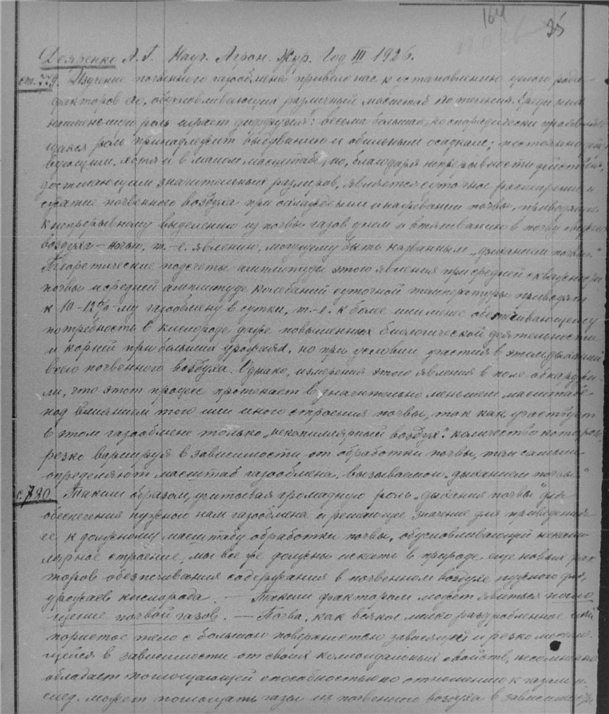 164 35
Дояренко А. Г. Науч. Агрон. Жур. Год III 1926.
ст. 779. Изучение почвенного газообмена привело нас к установлению целого ряда
факторов его, обусловливающих различный масштаб его течения. Среди них
наименьшая роль играет диффузия: весьма большая, но спорадически проявляю-
щаяся роль принадлежит выдуванию и обильным осадкам; постоянно
вующим, хотя и в малом масштабе, но, благодаря непрерывности действия,
достигающим значительных размеров, является суточное расширение и
сжатие почвенного воздуха при охлаждении и нагревании почвы, приводящее
к непрерывному выделению из почвы газов днем и втягиванию в почву
воздуха – ночью, т.-е. явление, могущему быть названным „дыханием почвы".
Теоретические подсчеты амплитуды этого явления при средней скважности
почвы и средней амплитуде колебаний суточной температуры приводят
к 10-12%-му газообмену в сутки, т.-е. к более или менее обеспечивающему
потребность в кислороде даже повышенных биологической деятельности
и корней при больших урожаях, но при условии участия в этом дыхании
всего почвенного воздуха. Однако, измерения этого явления в поле обнаружи-
ли, что этот процесс протекает в значительно меньшем масштабе
под влиянием того или иного строения почвы, так как участвует
в этом газообмене только „некапиллярный воздух", количество которого
резко варьируя в зависимости от обработки почвы, тем самым
определяют масштаб газообмена, вызываемого „дыханием почвы".
с. 780. Таким образом, учитывая громадную роль „дыхания почвы" для
обеспечения нужного нам газообмена и решающее значение для приведения
ее к должному масштабу обработки почвы, обусловливающей некапил-
лярное строение, мы все же должны искать в природе еще новых фак-
торов обеспечивания содержания в почвенном воздухе нужного для
урожаев кислорода. — Таким фактором может явиться погло-
щение почвой газов. — Почва, как всякое мелко раздробленное
пористое тело с большой поверхностью зависящей и резко меняю-
щейся в зависимости от своих коллоидальных свойств, несомненно
обладает поглощающей способностью по отношению к газам и
след. может поглощать газы из почвенного воздуха в зависимости